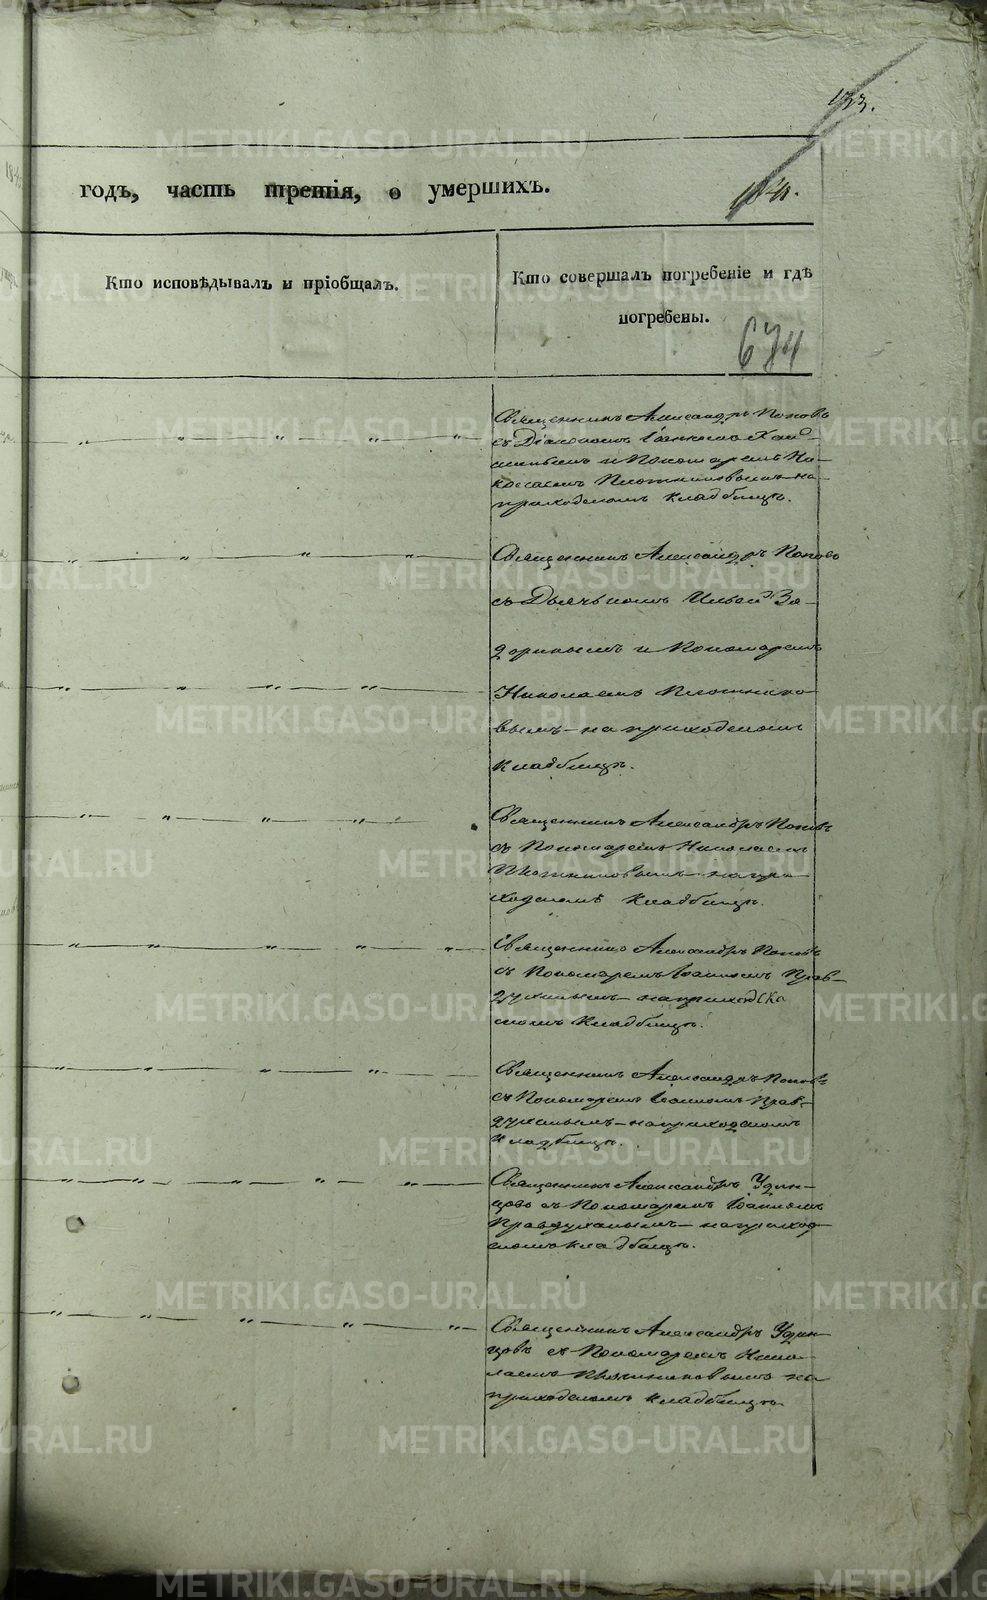 133.
годъ, часть третія, о умершихъ.
Кто исповѣдывалъ и пріобщалъ.
Кто совершалъ погребеніе и гдѣ
погребены.
674
Священникъ Александръ Поповъ
съ Діакономъ Іоанномъ
и Пономаремъ Ни-
колаемъ Плотниковымъ на
приходскомъ кладбищѣ.
Священникъ Александръ Поповъ
съ Дьячкомъ Ильей За-
доринымъ и Пономаремъ
Николаемъ Плотнико-
вымъ – на приходскомъ
кладбищѣ.
Священникъ Александръ Поповъ
съ Пономаремъ Николаемъ
Плотниковымъ на при-
ходскомъ кладбищѣ.
Священникъ Александръ Поповъ
съ Пономаремъ Іоанномъ Прав-
духинымъ – на приходска
комъ кладбищѣ.
Священникъ Александръ Поповъ
съ Пономаремъ Іоанномъ Прав-
духинымъ – на приходскомъ
кладбищѣ.
Священникъ Александръ Удин-
цовъ съ Пономаремъ Іоанномъ
Правдухинымъ – на приход-
скомъ кладбищѣ.
Священникъ Александръ Удин-
цовъ съ Пономаремъ Нико-
лаемъ Плотниковымъ на
приходскомъ кладбищѣ.
METRIKI.GASO-URAL.RU